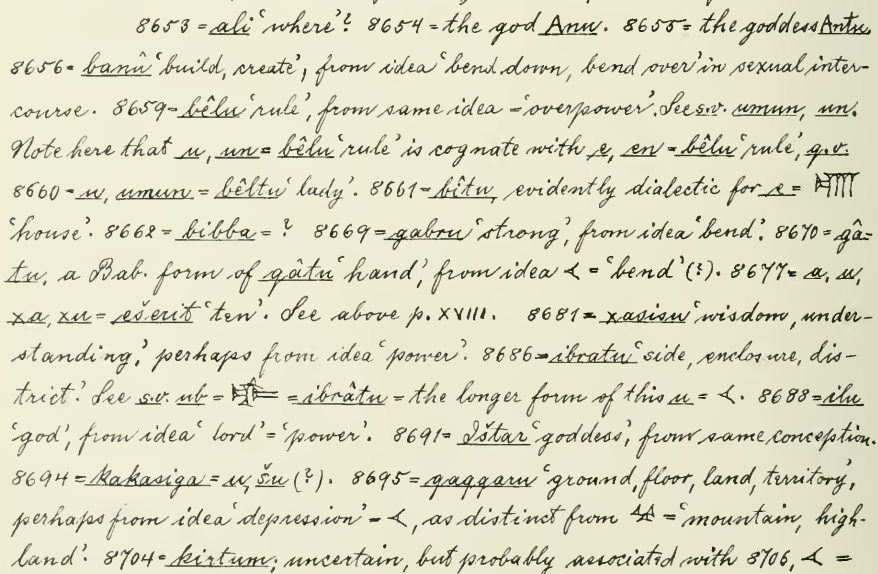 8653 = ali ‘where’? 8654 = the god Anu. 8655 = the goddess Antu.
8656 = banû ‘build, create’, from idea ‘bend down, bend over’ in sexual inter-
course. 8659 = bêlu ‘rule’, from same idea = ‘overpower’. See s.v. umun, un.
Note here that u, un = bêlu ‘rule’ is cognate with e, en = bêlu ‘rule’, q.v.
8660 = u, umun = bêltu ‘lady’. 8661 = bîtu, evidently dialectic for e = 𒂍
‘house’. 8662 = bibba = ? 8669 = gabru ‘strong’, from idea ‘bend’. 8670 = gâ-
tu, a Bab. form of qâtu ‘hand’, from idea 𒌋 = ‘bend’ (?). 8677 = a, u,
xa, xu = ešerit ‘ten’. See above p. XVIII. 8681 = xasisu ‘wisdom, under-
standing,’ perhaps from idea ‘power’. 8686 = ibratu ‘side, enclosure, dis-
trict’. See s.v. ub = = ibrâtu = the longer form of this u = 𒌋. 8688 = ilu
‘god’, from idea ‘lord’ = ‘power’. 8691 = Ištar ‘goddess’, from same conception.
8694 = kakasiga = u, šu (?). 8695 = qaqqaru ‘ground, floor, land, territory’,
perhaps from idea ‘depression’ = 𒌋, as distinct from 𒆳 = ‘mountain, high-
land’. 8704 = kirtum; uncertain, but probably associated with 8706, 𒌋 =